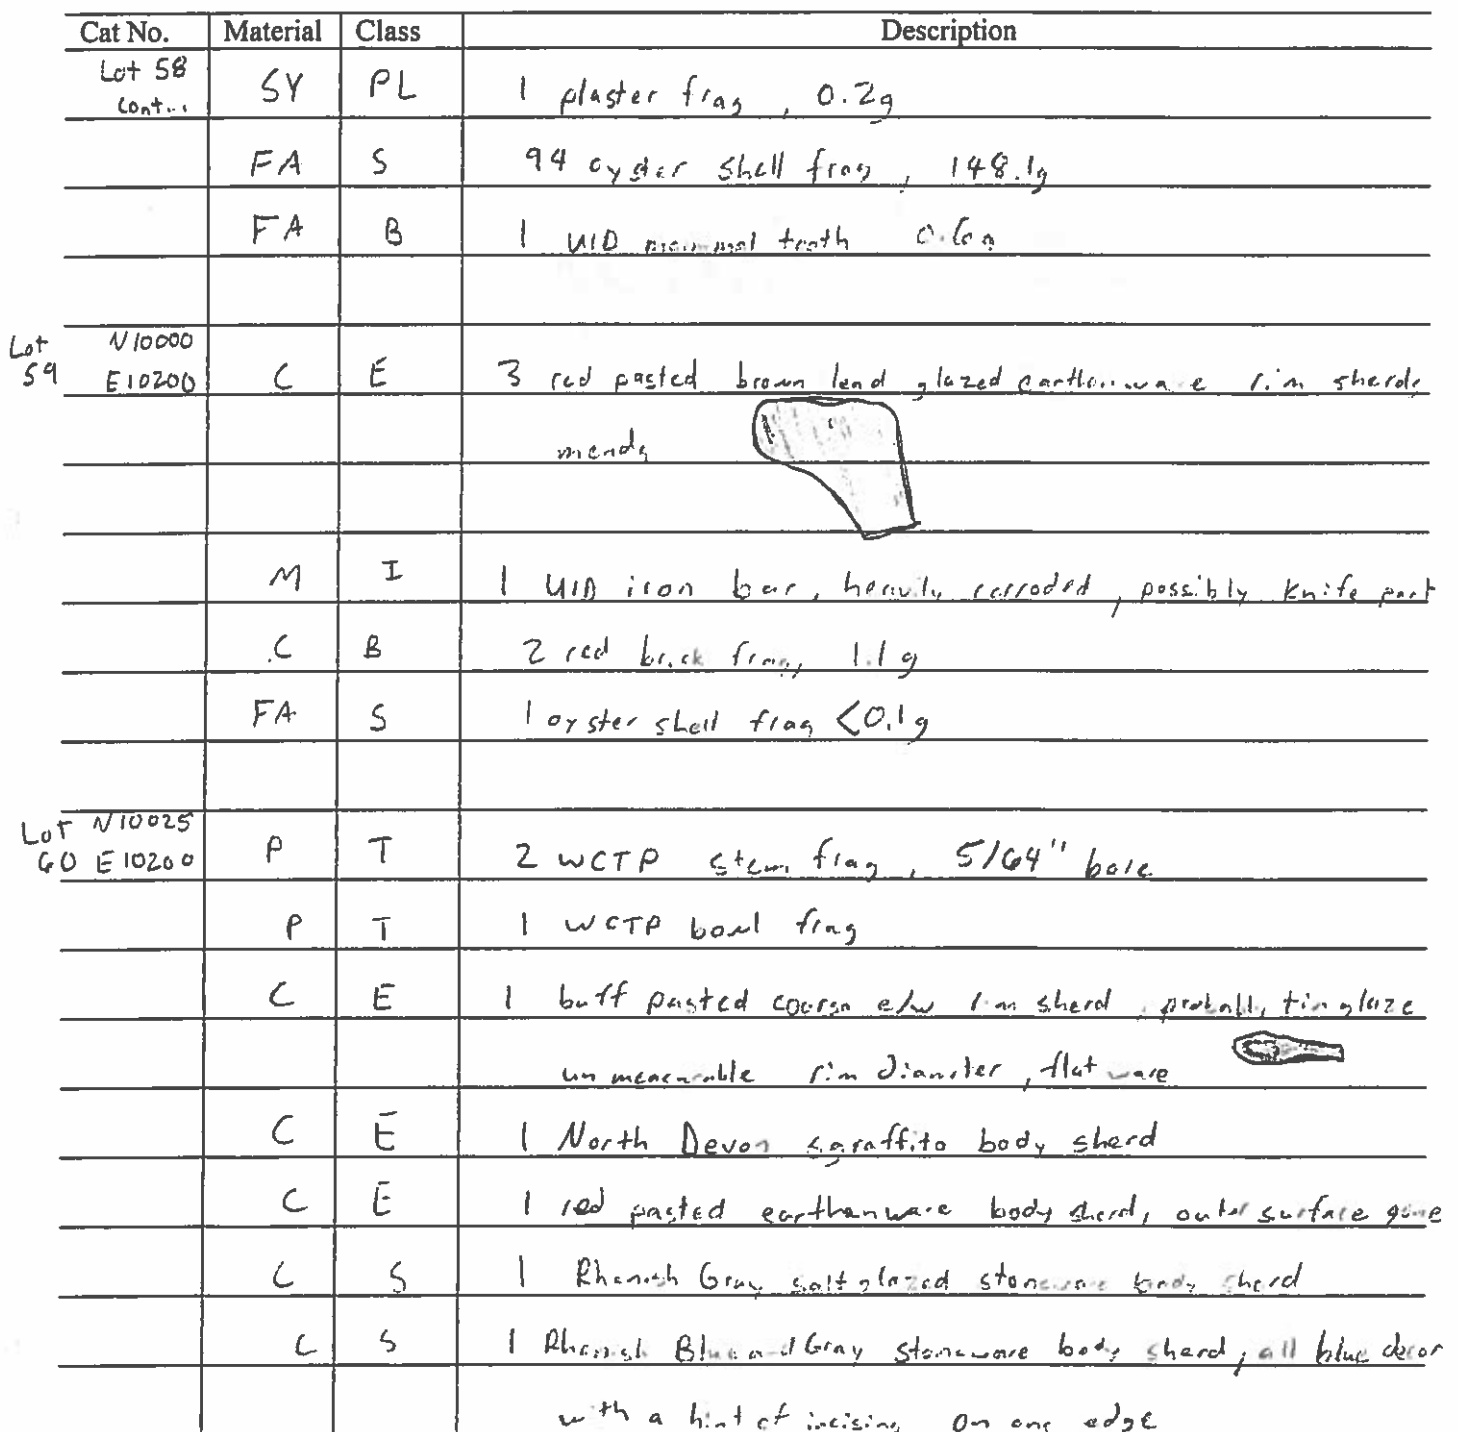 Cat No. Material Class Description
Lot 58 cont... SY PL 1 plaster frag, 0.2g
FA S 94 oyster shell frag, 148.1g
FA B 1 UID mammal tooth 0.6g
Lot 59 N10000 E10200 C E 3 red pasted brown lead glazed earthenware rim sherds
mends
M I 1 UID iron bar, heavily corroded, possibly knife part
C B 2 red brick frag, 1.1g
FA S 1 oyster shell frag <0.1g
Lot 60 N10025 E10200 P T 2 WCTP stem frag, 5/64" bore
P T 1 WCTP bowl frag
C E 1 buff pasted coarse e/w rim sherd, probally tin glaze
unmeasurable rim diameter, flat ware
C E 1 North Devon sgraffito body sherd
C E 1 red pasted earthenware body sherd, outer surface gone
C S 1 Rhenish Gray salt glazed stoneware body sherd
C S 1 Rhenish Blue and Gray stoneware body sherd, all blue decor
with a hint of incising on one edge